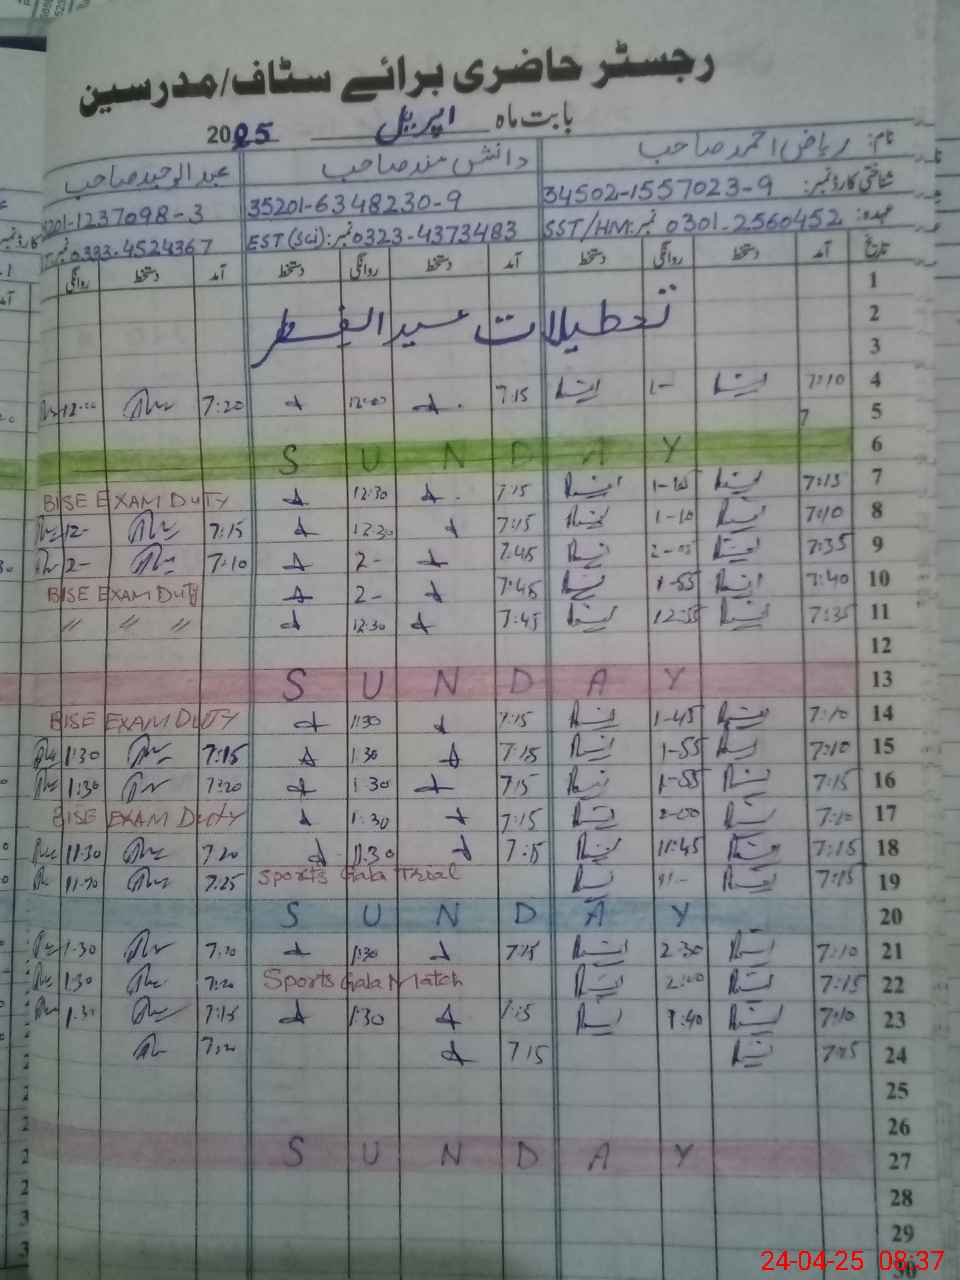 رجسٹر حاضری برائے سٹاف/مدرسین
بابت ماہ اپریل 2025
نام: ریاض احمد صاحب دانش مند صاحب عبدالوحید صاحب
شناختی کارڈ نمبر: 34502-1557023-9 35201-6348230-9 5201-1237098-3
عہدہ: SST/HM نمبر: 0301-2560452 EST(Sci): نمبر 0323-4373483 0333-4524367
تاریخ آمد دستخط روانگی دستخط آمد دستخط روانگی دستخط آمد دستخط روانگی
1
2 تعطیلات عید الفطر
3
4 7:10 1- 7:15 12:00 7:20 12:00
5 7
6 SUNDAY
7 7:15 1-10 7:15 12:30 BISE EXAM DUTY
8 7:10 1-10 7:15 12:30 7:15 12-
9 7:35 2-05 7:45 2- 7:10 2-
10 7:40 1-55 7:45 2- BISE EXAM DUTY
11 7:35 12:55 7:45 12:30 〃 〃 〃
12
13 SUNDAY
14 7:10 1-45 7:15 1:30 BISE EXAM DUTY
15 7:10 1-55 7:15 1:30 7:15 1:30
16 7:15 1-55 7:15 1:30 7:20 1:30
17 7:10 2-00 7:15 1:30 BISE EXAM Duty
18 7:15 11:45 7:15 11:30 7:20 11:30
19 7:15 11- Sports Gala Trial 7:25 11:30
20 SUNDAY
21 7:10 2:30 7:15 1:30 7:20 1:30
22 7:15 2:00 Sports Gala Match 7:20 1:30
23 7:10 1:40 7:15 1:30 7:15 1:30
24 7:15 7:15 7:20
25
26
27 SUNDAY
28
29
30
24-04-25 08:37